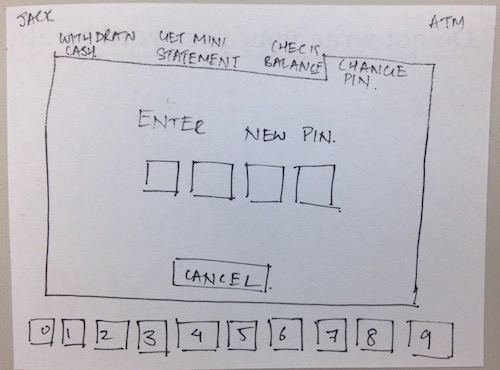 JACK
ATM
WITHDRAW CASH
GET MINI STATEMENT
CHECK BALANCE
CHANGE PIN.
ENTER NEW PIN.
CANCEL
0 1 2 3 4 5 6 7 8 9